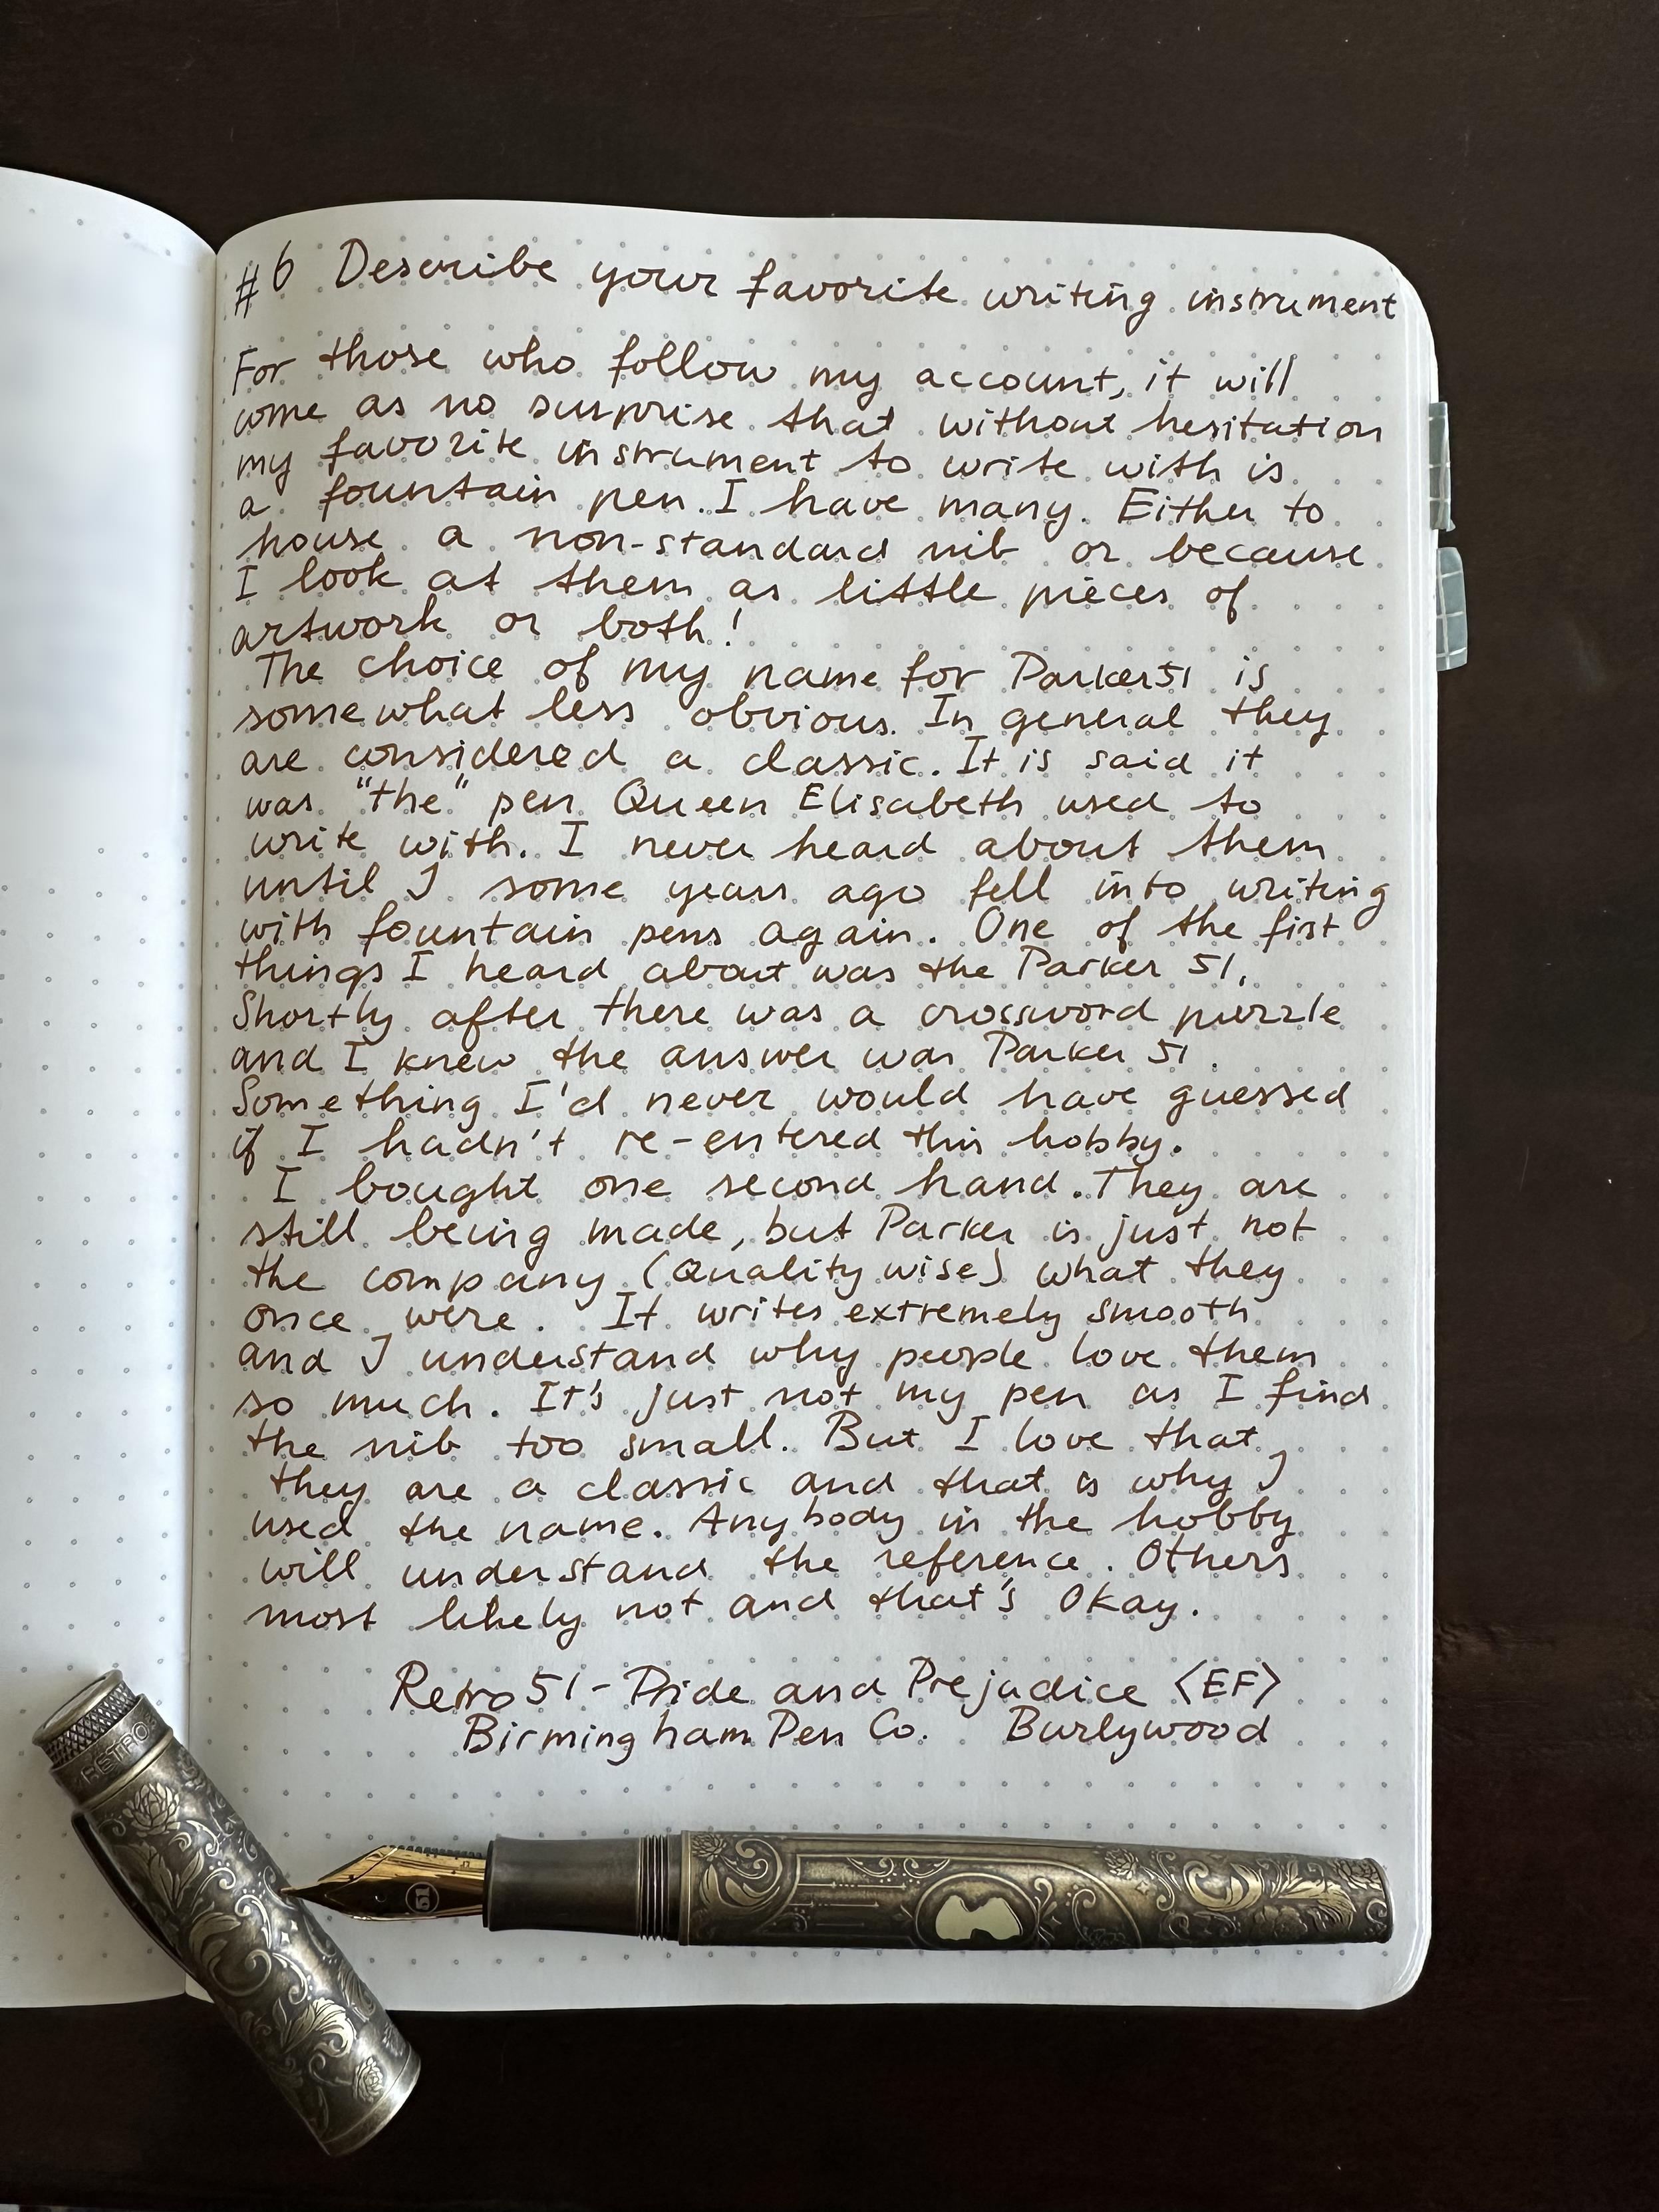 #6 Describe your favorite writing instrument
For those who follow my account, it will
come as no surprise that without hesitation
my favorite instrument to write with is
a fountain pen. I have many. Either to
house a non-standard nib or because
I look at them as little pieces of
artwork or both!
The choice of my name for Parker51 is
somewhat less obvious. In general they
are considered a classic. It is said it
was "the" pen Queen Elisabeth used to
write with. I never heard about them
until I some years ago fell into writing
with fountain pens again. One of the first
things I heard about was the Parker 51.
Shortly after there was a crossword puzzle
and I knew the answer was Parker 51.
Something I'd never would have guessed
if I hadn't re-entered this hobby.
I bought one second hand. They are
still being made, but Parker is just not
the company (Quality wise) what they
once were. It writes extremely smooth
and I understand why people love them
so much. It's just not my pen as I find
the nib too small. But I love that
they are a classic and that is why I
used the name. Anybody in the hobby
will understand the reference. Others
most likely not and that's Okay.
Retro 51 - Pride and Prejudice <EF>
Birmingham Pen Co. Burlywood
RETRO
51